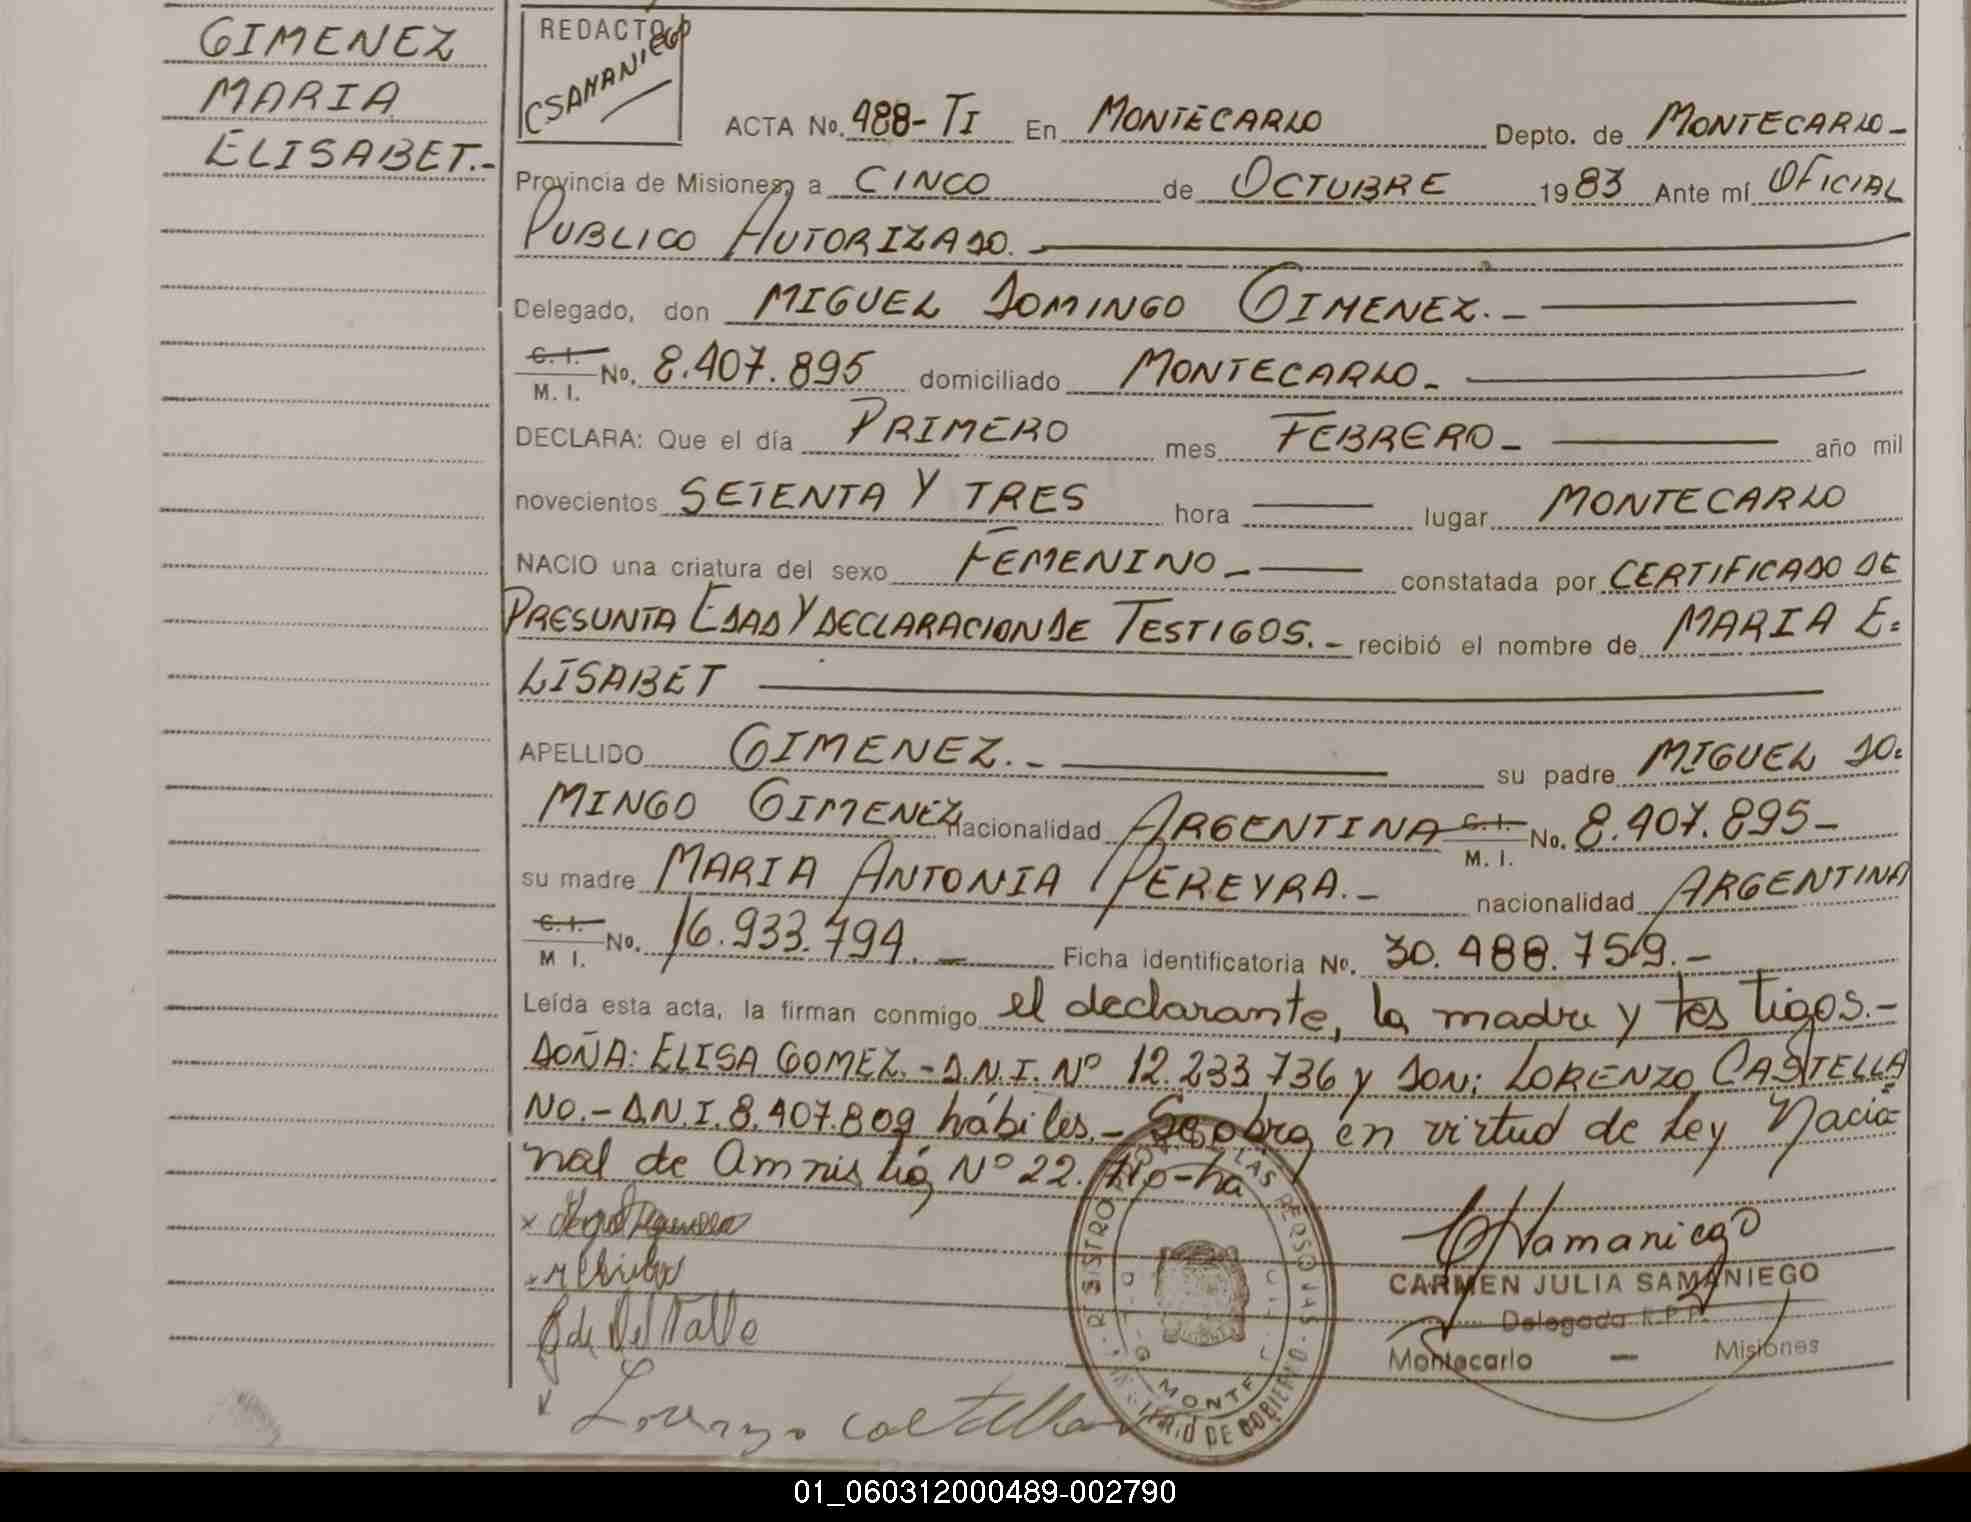 GIMENEZ
MARIA
ELISABET.-
REDACTO
CSAMANIEGO
ACTA No. 488-TI En MONTECARLO Depto. de MONTECARLO-
Provincia de Misiones, a CINCO de OCTUBRE 1983 Ante mí OFICIAL
PUBLICO AUTORIZADO.
Delegado, don MIGUEL DOMINGO GIMENEZ.-
C. I.
M. I. No. 8.407.895 domiciliado MONTECARLO-
DECLARA: Que el día PRIMERO mes FEBRERO- año mil
novecientos SETENTA Y TRES hora lugar MONTECARLO
NACIO una criatura del sexo FEMENINO- constatada por CERTIFICADO DE
PRESUNTA EDAD Y DECLARACION DE TESTIGOS.- recibió el nombre de MARIA E=
LISABET
APELLIDO GIMENEZ.- su padre MIGUEL DO=
MINGO GIMENEZ nacionalidad ARGENTINA C. I.
M. I. No. 8.407.895-
su madre MARIA ANTONIA PEREYRA.- nacionalidad ARGENTINA
C. I.
M I. No. 16.933.794.- Ficha identificatoria No. 30.488.759.-
Leída esta acta, la firman conmigo el declarante, la madre y testigos.-
DOÑA: ELISA GOMEZ.-D.N.I. Nº 12.233.736 y DON: LORENZO CASTELLA
NO.-D.N.I. 8.407.809 hábiles.- Se obra en virtud de Ley Nacio=
nal de Amnistía Nº 22.
CSamaniego
CARMEN JULIA SAMANIEGO
Delegada R.P.P.
Montecarlo - Misiones
del Valle
Lorenzo
REGISTRO DE LAS PERSONAS
MONTE
DE GOBIERNO
01_060312000489-002790